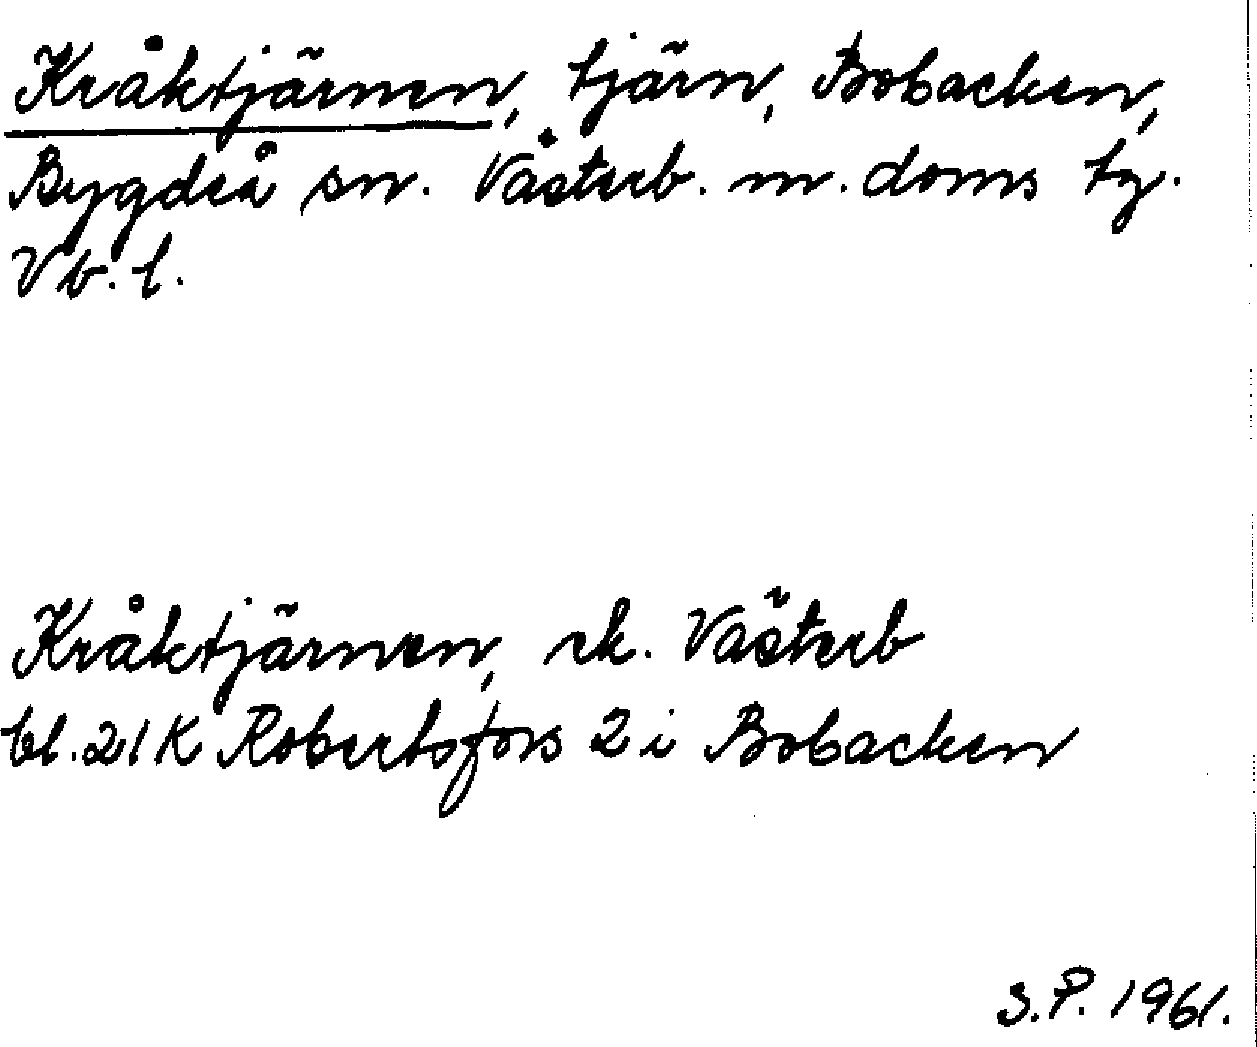 Kråktjärnen, tjärn, Bobacken,
Bygdeå sn. Västerb. m. doms tg.
Vb. l.
Kråktjärnen, ek. Västerb
bl. 21K Robertsfors 2 i Bobacken
S.P. 1961.